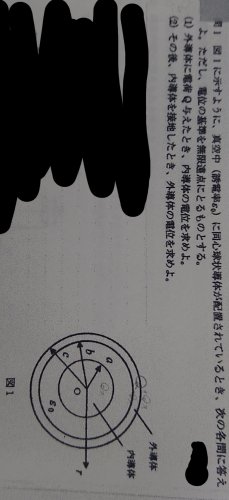 問1 図1に示すように、真空中（誘電率ε₀）に同心球状導体が配置されているとき、次の各問に答え
よ。ただし、電位の基準を無限遠点にとるものとする。
(1) 外導体に電荷Q与えたとき、内導体の電位を求めよ。
(2) その後、内導体を接地したとき、外導体の電位を求めよ。
外導体
内導体
a
b
c
r
O
ε₀
図1